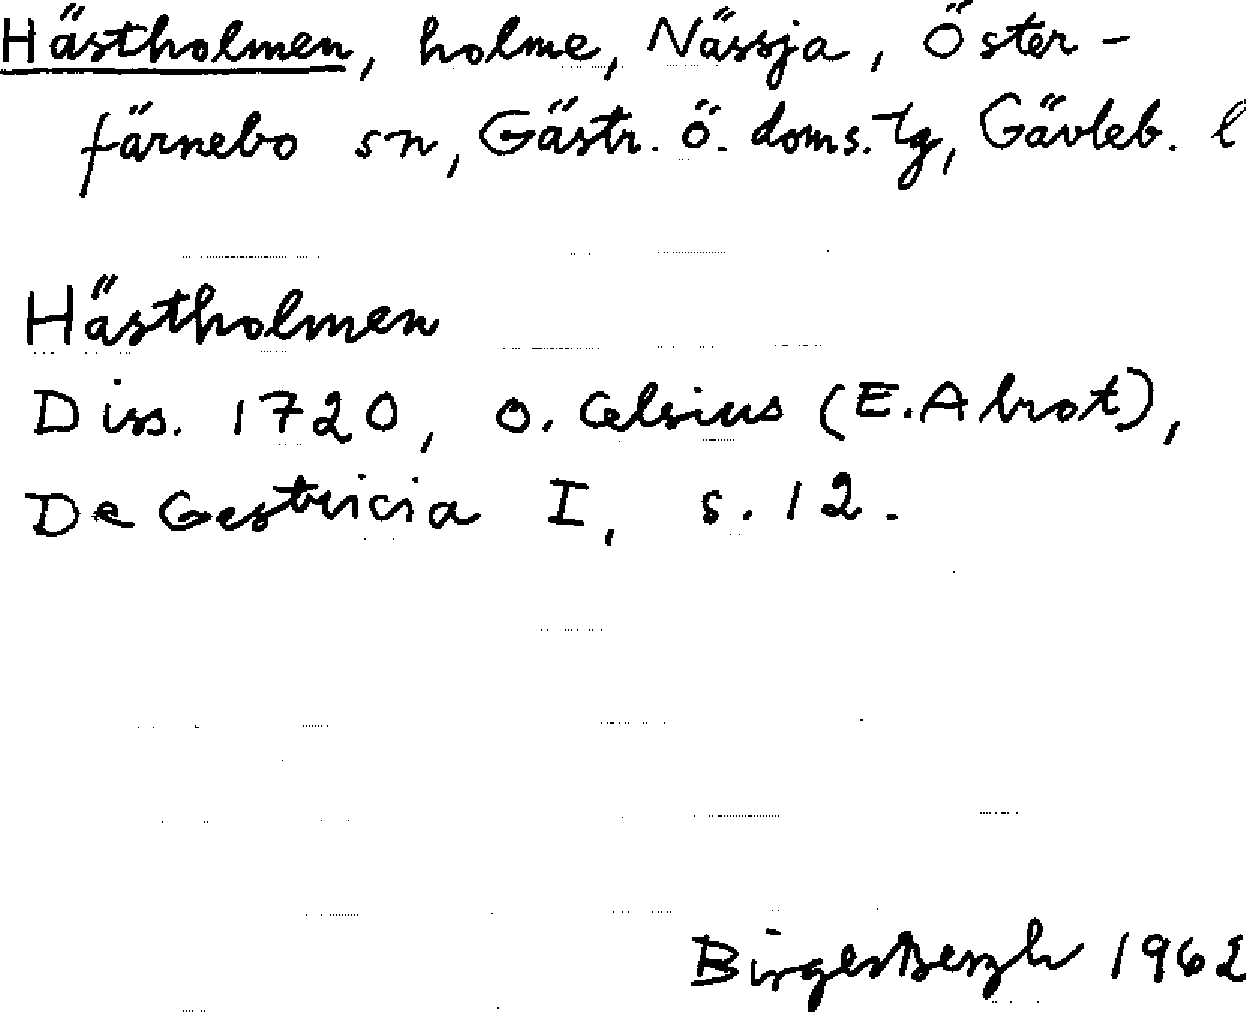 Hästholmen, holme, Nässja, Öster-
färnebo sn, Gästr. ö. doms.tg, Gävleb. l
Hästholmen
Diss. 1720, O. Celsius (E. Abrot),
De Gestricia I, s. 12.
1962